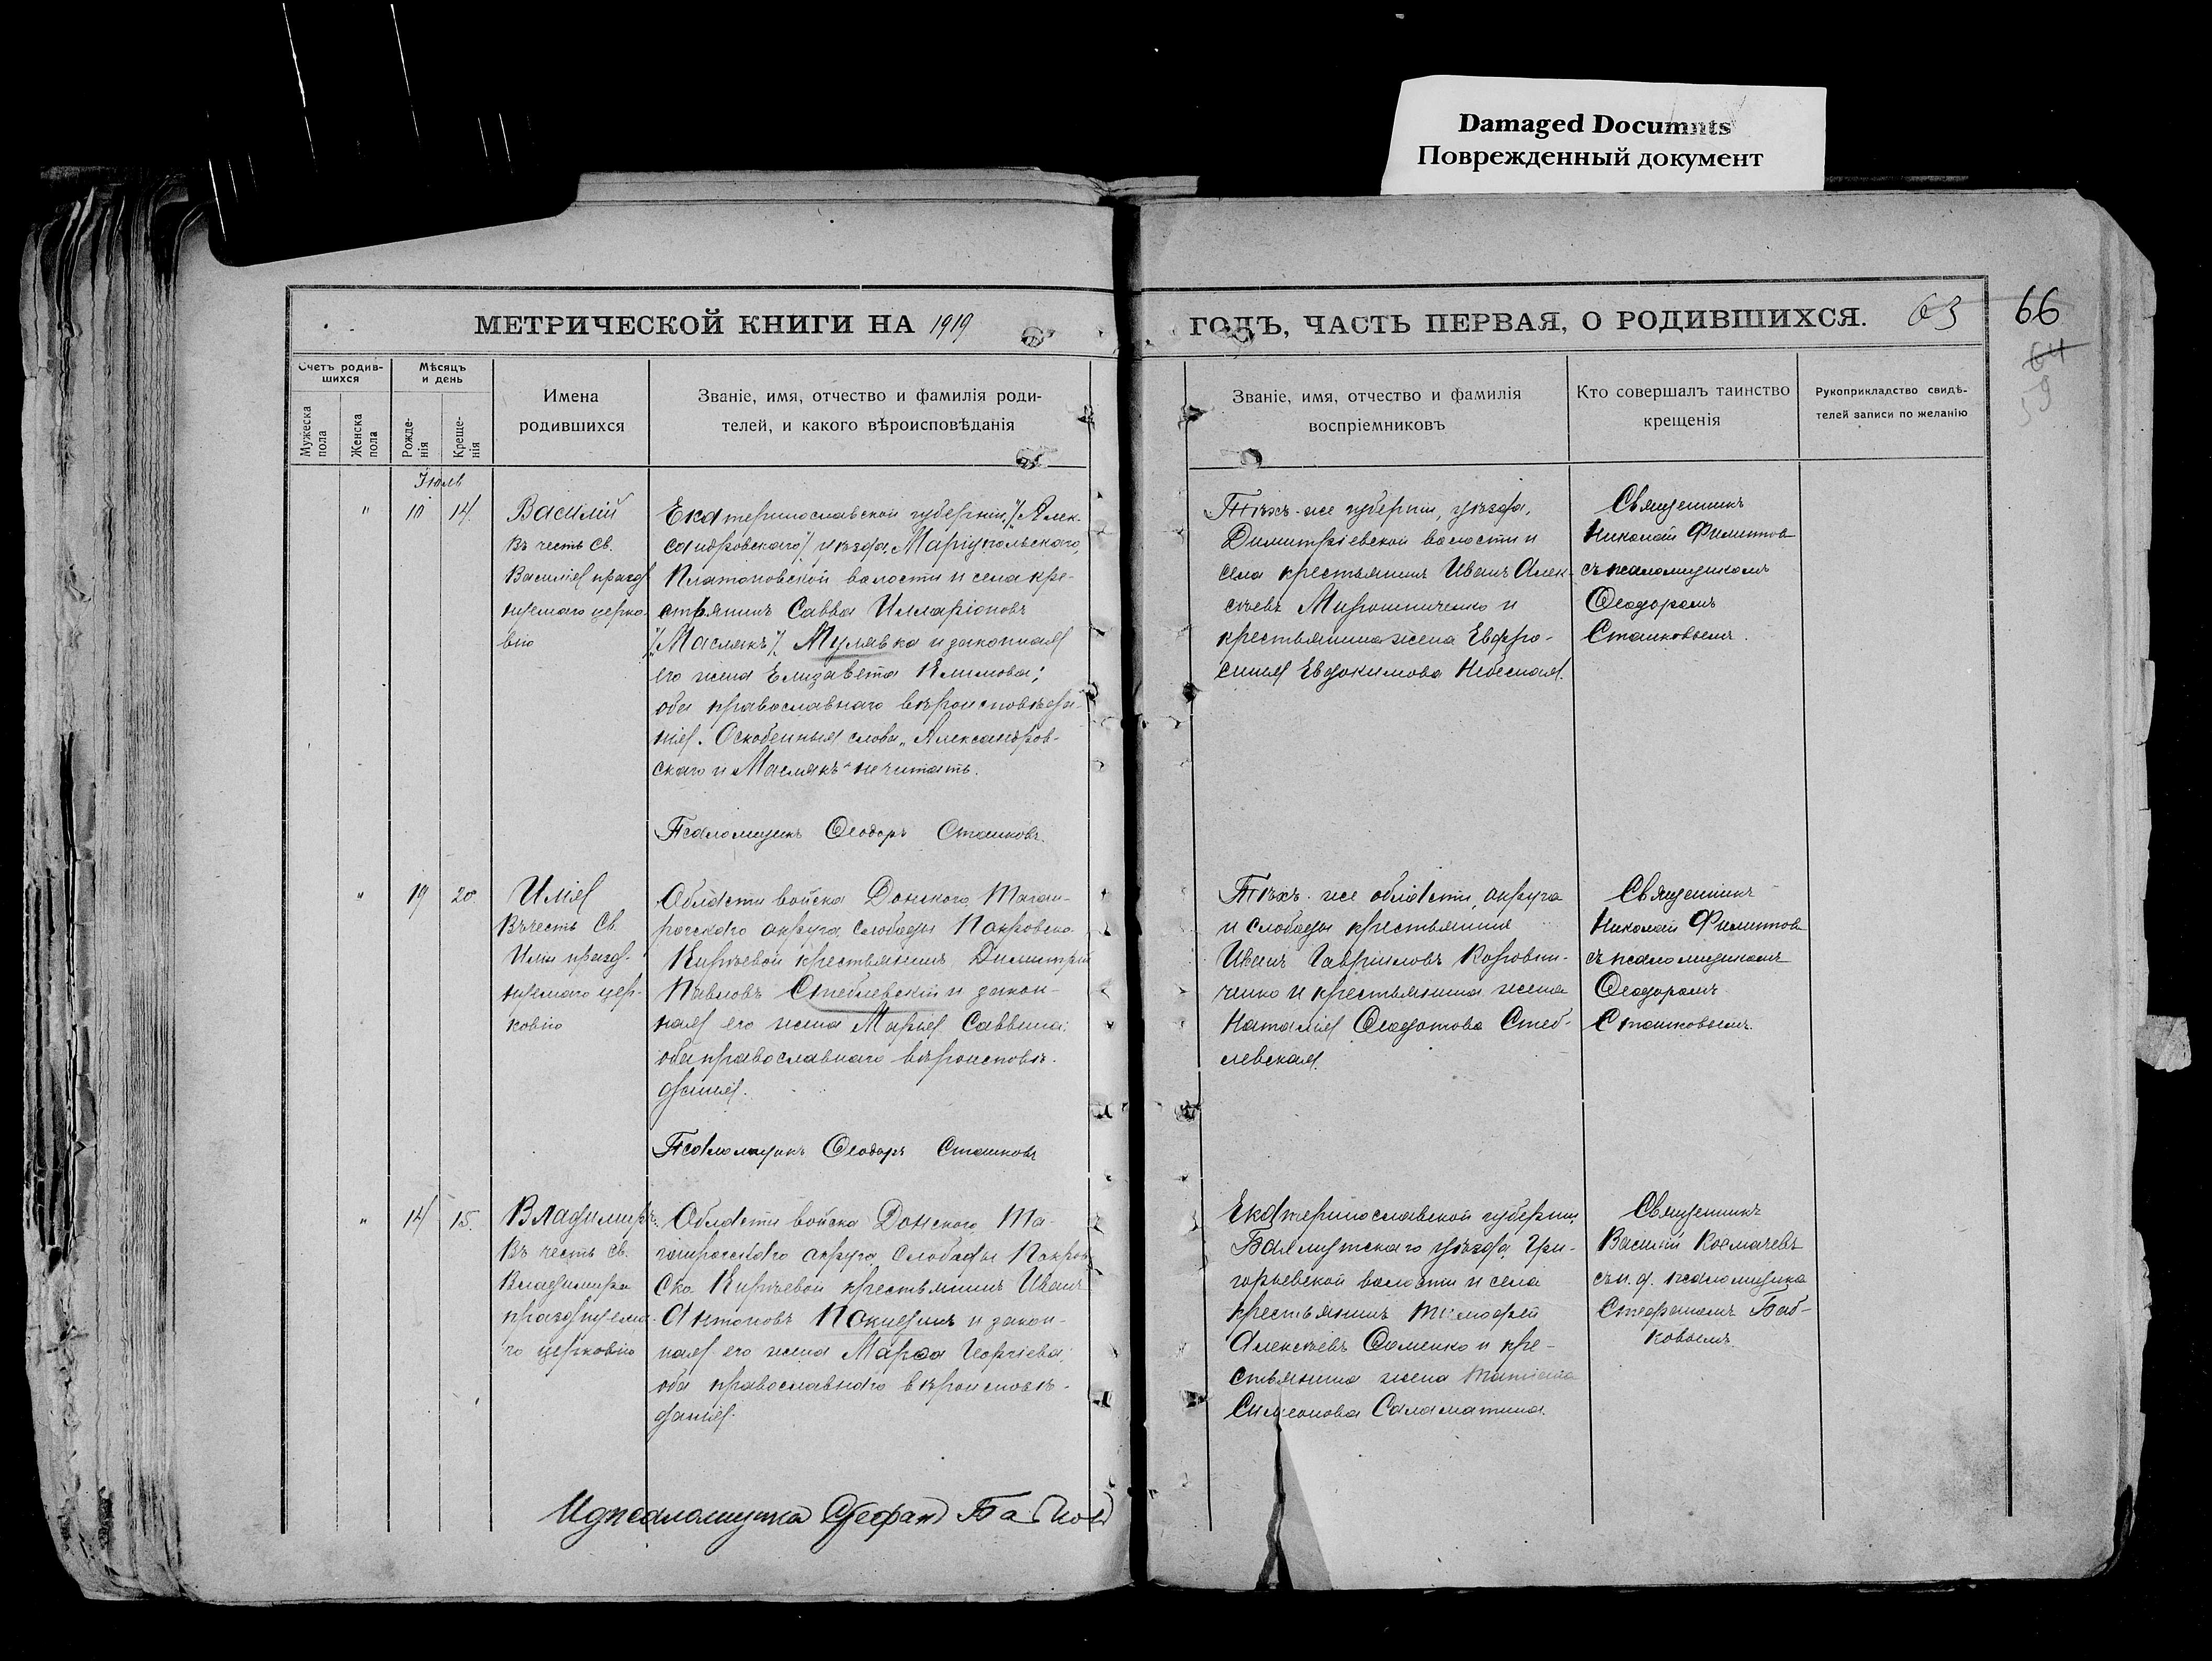 Damaged Documnts
Поврежденный документ
МЕТРИЧЕСКОЙ КНИГИ НА 1919
ГОДЪ, ЧАСТЬ ПЕРВАЯ, О РОДИВШИХСЯ. 63
66
64
59
Счетъ родив-
шихся
Мужеска
пола
Женска
пола
Мѣсяцъ
и день
Рожде-
нія
Креще-
нія
Имена
родившихся
Званіе, имя, отчество и фамилія роди-
телей, и какого вѣроисповѣданія
Званіе, имя, отчество и фамилія
воспріемниковъ
Кто совершалъ таинство
крещенія
Рукоприкладство свидѣ-
телей записи по желанію
Іюль
" 10 14.
Василій
Въ честь Св.
Василія празд
нуемаго церко
вію
Екатеринославской губерніи, /Алек-
сандровскаго/ уѣзда, Маріупольскаго,
Платоновской волости и села кре-
стьянинъ Савва Илларіоновъ
/Маслякъ/ Мулявка и законная
его жена Елизавета Климова;
оба православнаго вѣроисповѣда-
нія. Оскобенныя слова „Александров-
скаго и Маслякъ" не читать.
Псаломщикъ Ѳеодоръ Сташковъ.
Тѣхъ-же губерніи, уѣзда,
Димитріевской волости и
села крестьянинъ Иванъ Алек-
сѣевъ Мирошниченко и
крестьянина жена Евфро-
синія Евдокимова Небесная.
Священникъ
Николай Филиппов
съ псаломщикомъ
Ѳеодоромъ
Сташковымъ.
" 19 20.
Илія
Въ честь Св.
Иліи празд-
нуемаго цер-
ковію
Области войска Донского, Таган-
рогскаго округа, слободы Покровско-
Кирѣевой крестьянинъ Димитрій
Павловъ Стеблевскій и закон-
ная его жена Марія Саввина;
оба православнаго вѣроисповѣ-
данія.
Псаломщикъ Ѳеодоръ Сташковъ
Тѣхъ-же области, округа
и слободы крестьянинъ
Иванъ Гавриловъ Коровни-
ченко и крестьянина жена
Наталія Ѳеодотова Стеб-
левская.
Священникъ
Николай Филиппов
съ псаломщикомъ
Ѳеодоромъ
Сташковымъ.
" 14 15.
Владимиръ.
Въ честь св.
Владимира
празднуема-
го церковію
Области войска Донского, Та-
ганрогскаго округа, слободы Покров-
ско Кирѣевой крестьянинъ Иванъ
Антоновъ и закон-
ная его жена Марѳа Георгіева;
оба православнаго вѣроисповѣ-
данія.
Ид псаломщика Стефан Бабков
Екатеринославской губерніи,
Бахмутскаго уѣзда, Гри-
горьевской волости и села
крестьянинъ Тимофей
Алексѣевъ Ѳоменко и кре-
стьянина жена Татіана
Симеонова Саламатина.
Священникъ
Василій Космачевъ
съ и. д. псаломщика
Стефаномъ Баб-
ковымъ